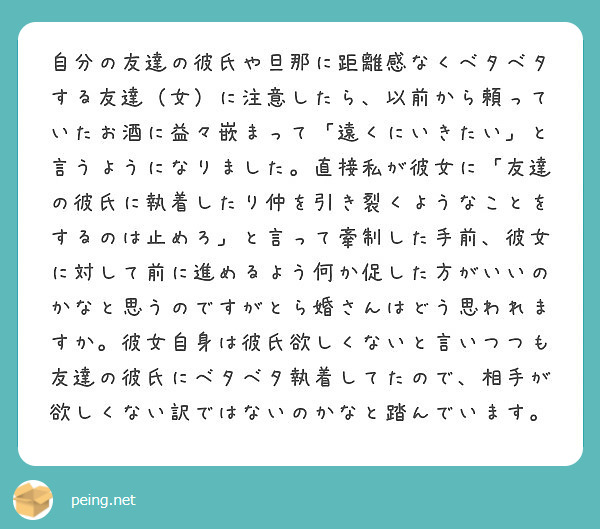 自分の友達の彼氏や旦那に距離感なくベタベタ
する友達（女）に注意したら、以前から頼って
いたお酒に益々嵌まって「遠くにいきたい」と
言うようになりました。直接私が彼女に「友達
の彼氏に執着したり仲を引き裂くようなことを
するのは止めろ」と言って牽制した手前、彼女
に対して前に進めるよう何か促した方がいいの
かなと思うのですがとら婚さんはどう思われま
すか。彼女自身は彼氏欲しくないと言いつつも
友達の彼氏にベタベタ執着してたので、相手が
欲しくない訳ではないのかなと踏んでいます。
peing.net